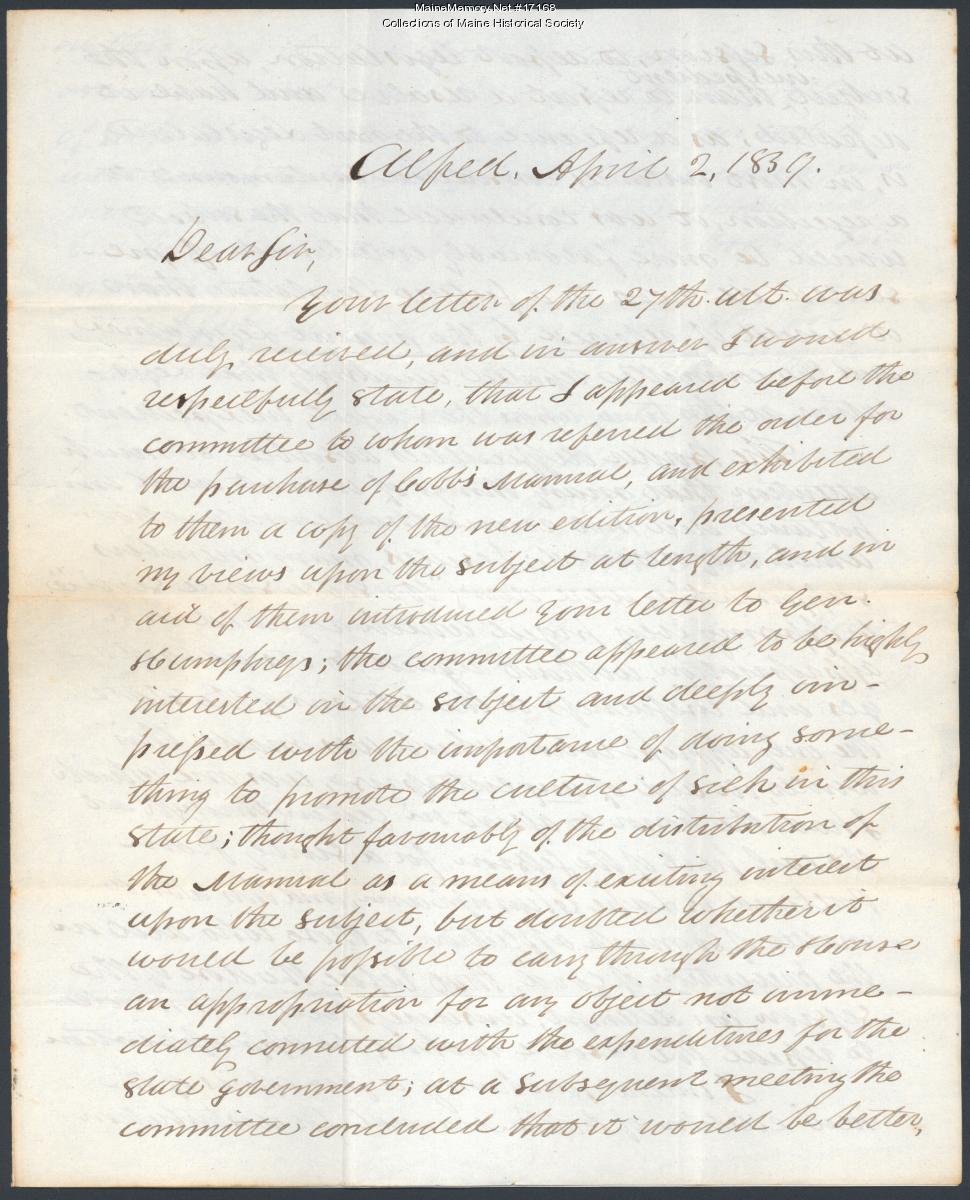 MaineMemory.Net #17168
Collections of Maine Historical Society
Alfred, April 2, 1839.
Dear Sir,
Your letter of the 27th. ult. was
duly received, and in answer I would
respectfully state, that I appeared before the
committee to whom was referred the order for
the purchase of Cobb's Manual, and exhibited
to them a copy of the new edition, presented
my views upon the subject at length, and in
aid of them introduced your letter to Gen.
Humphreys; the committee appeared to be highly
interested in the subject and deeply im-
pressed with the importance of doing some-
thing to promote the culture of silk in this
state; thought favourably of the distribution of
the Manual as a means of exciting interest
upon the subject, but doubted whether it
would be possible to carry through the House
an appropriation for any object not imme-
diately connected with the expenditures for the
state government; at a subsequent meeting the
committee concluded that it would be better,